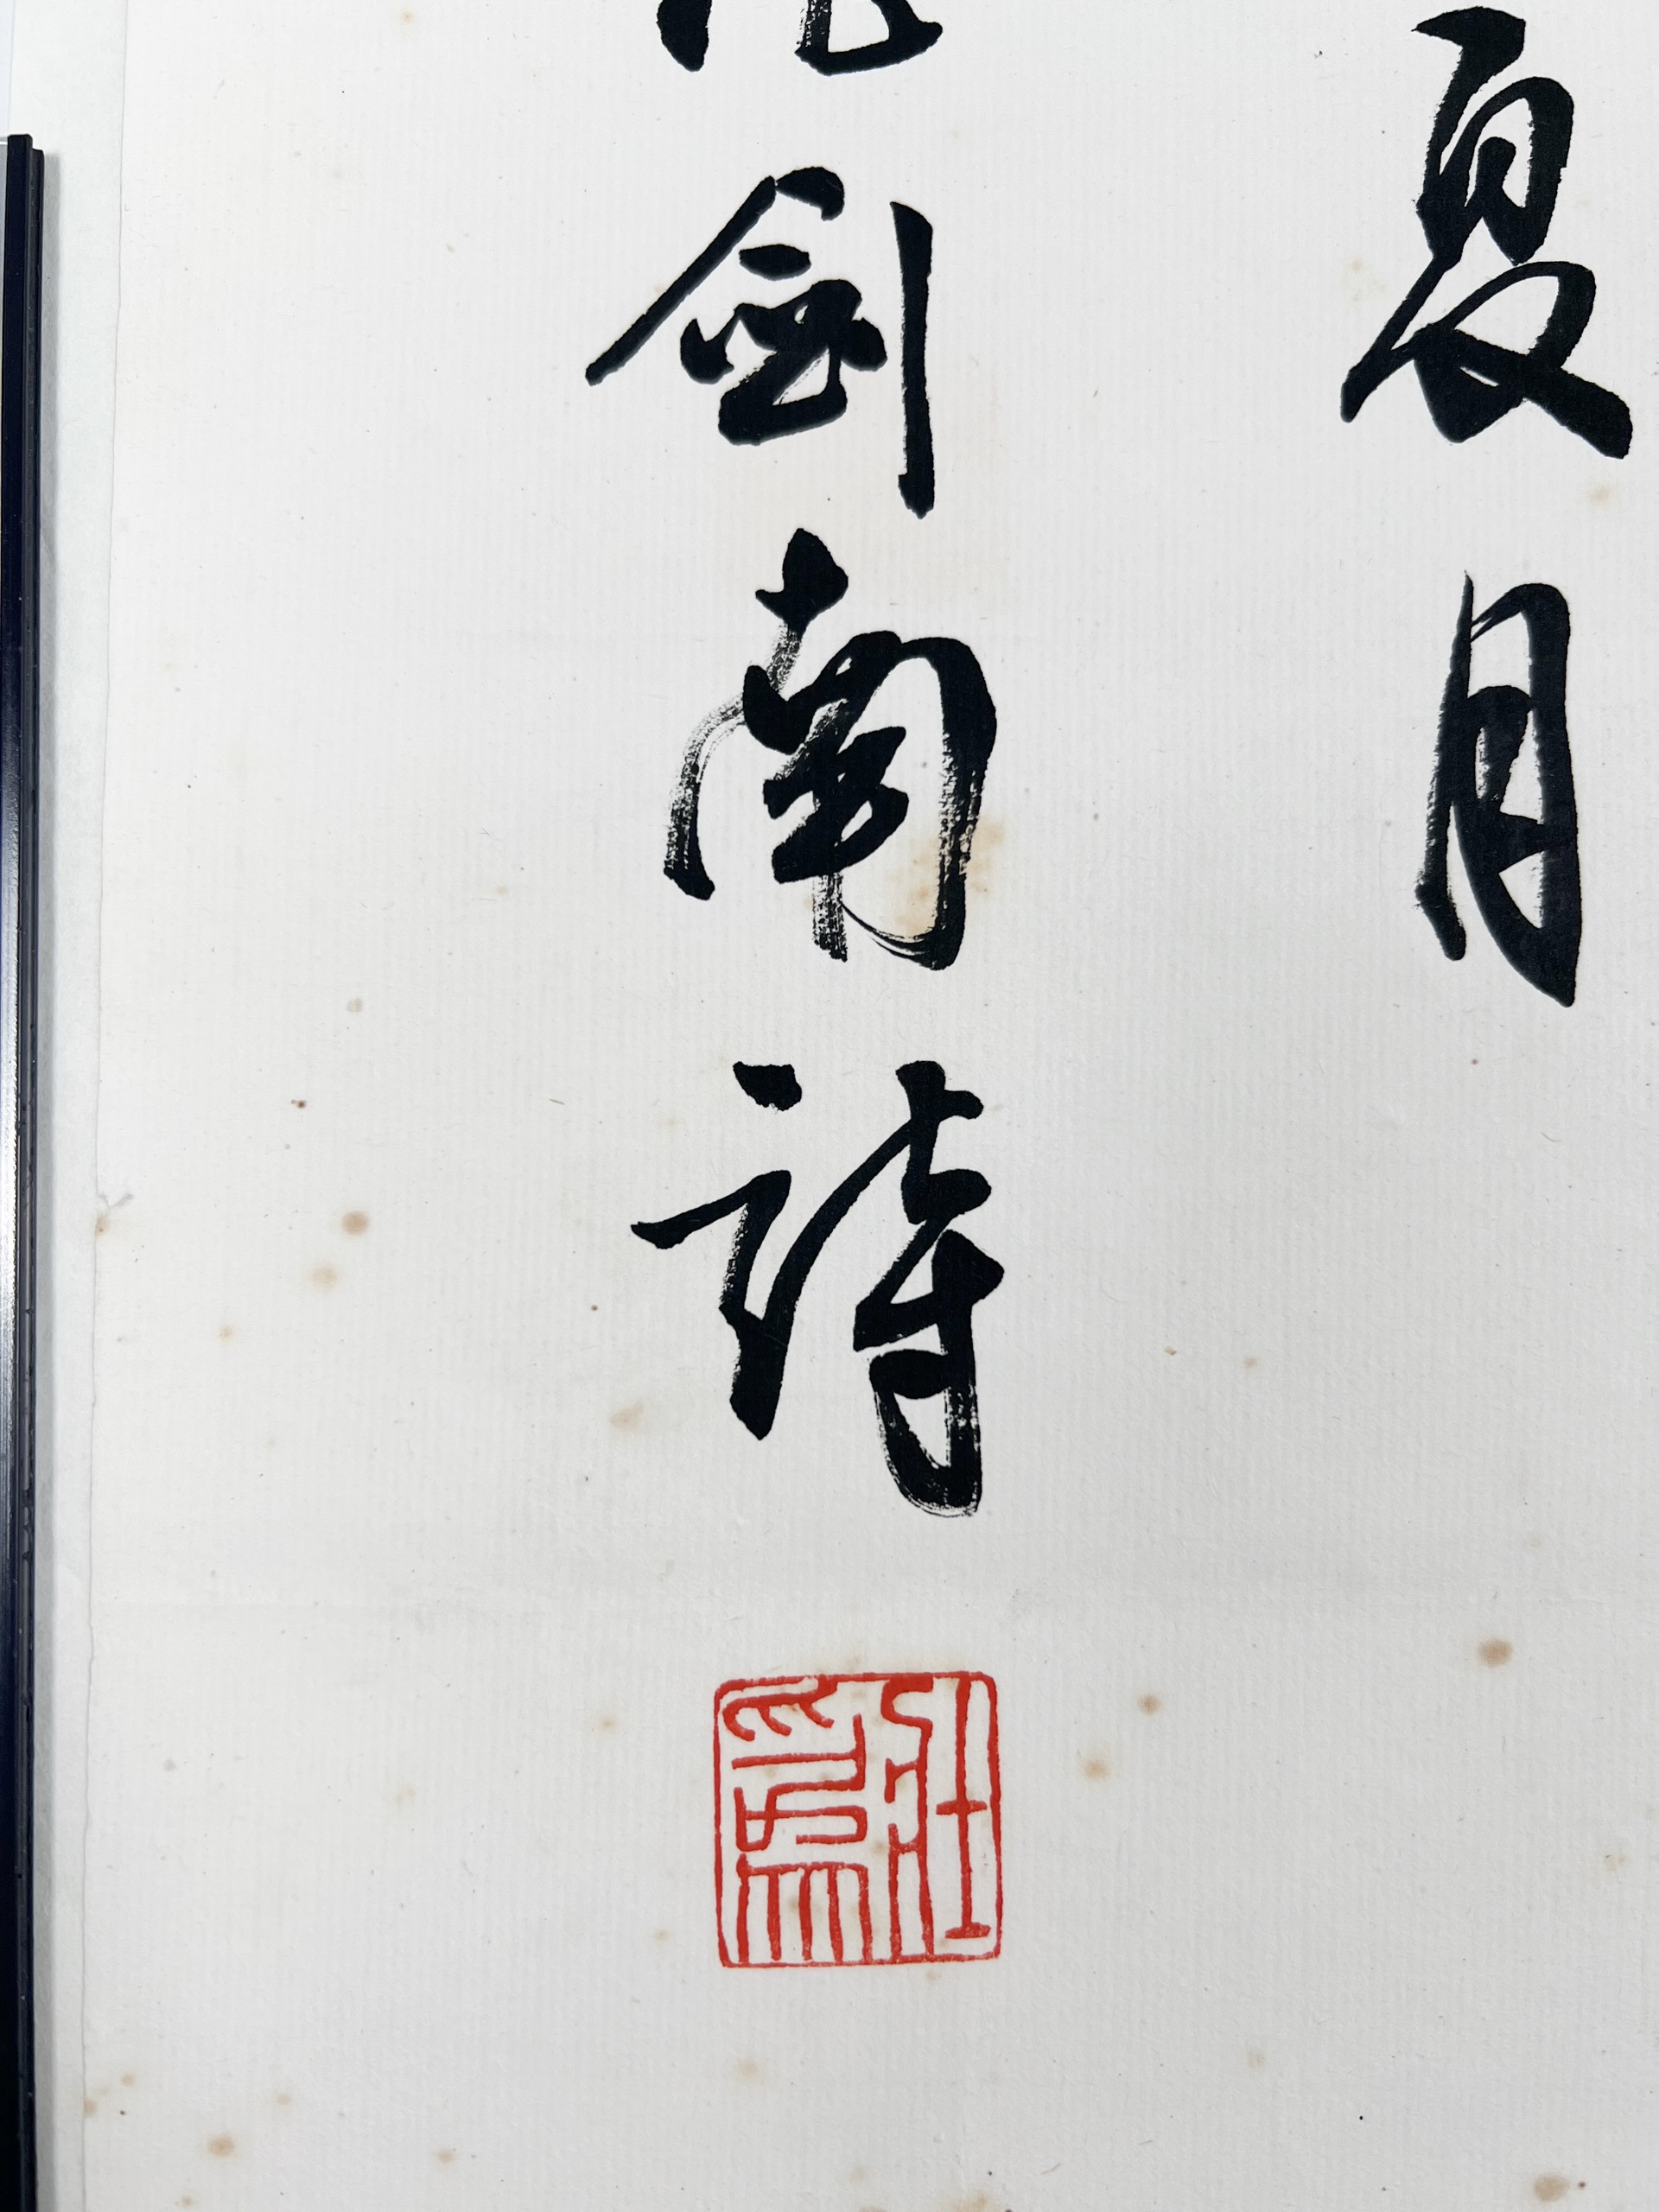 夏月
劍南詩